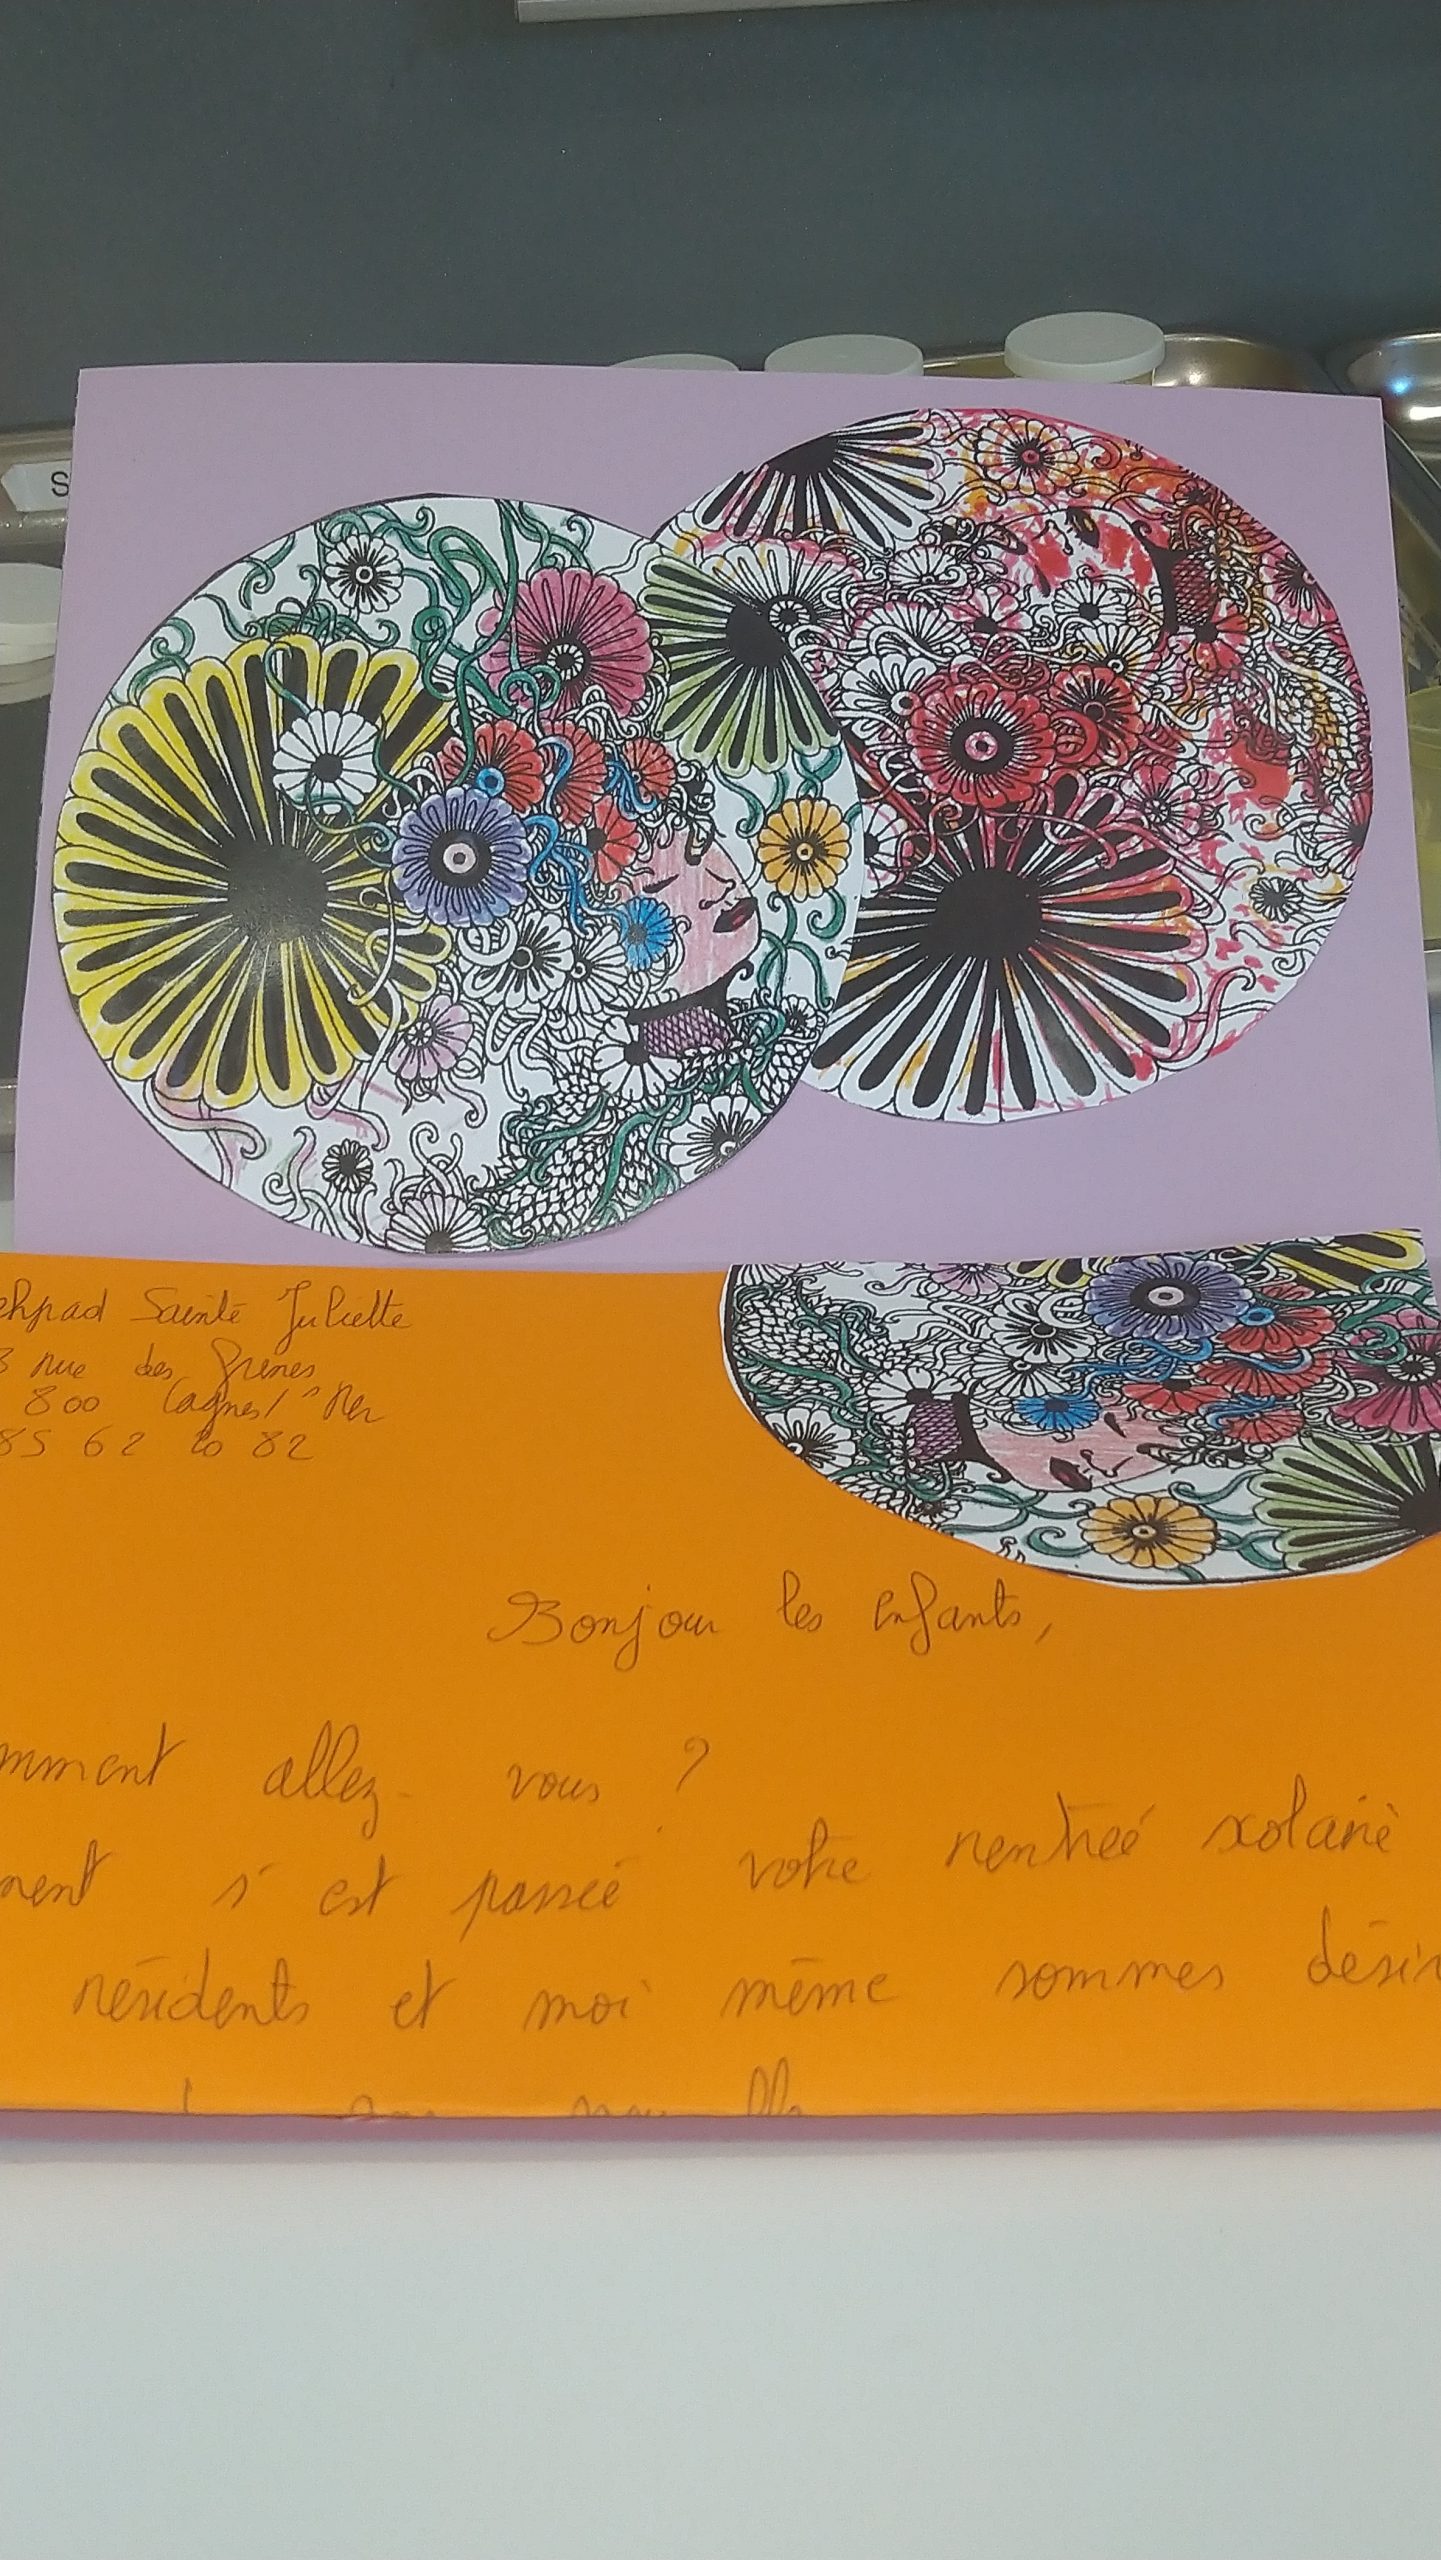 S
ehpad Sainte Juliette
3 rue des Frênes
800 Cagnes/Mer
85 62 20 82
Bonjour les enfants,
mment allez-vous ?
ment s'est passée votre rentrée scolaire
résidents et moi même sommes désir